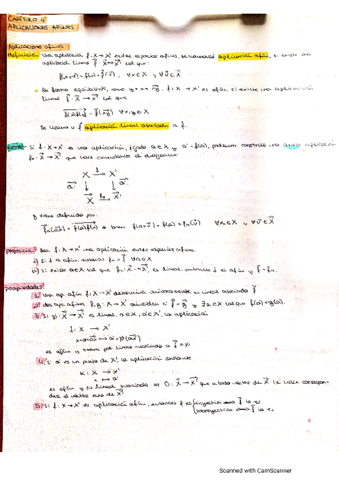 CAPÍTULO 4
APLICACIONES AFINES
Aplicaciones afines
Definición: Una aplicación f: X → X' entre espacios afines, se denomina aplicación afín, si existe una
aplicación lineal f⃗: X⃗ → X⃗' tal que:
f(x+v⃗) = f(x) + f⃗(v⃗), ∀x∈X, ∀v⃗∈X⃗
De forma equivalente, como y = x + x⃗y, f: X → X' es afín, si existe una aplicación
lineal f⃗: X⃗ → X⃗' tal que
f(x)f(y) = f⃗(xy) ∀x,y∈X
Se llama a f⃗ aplicación lineal asociada a f.
Si f: X → X' es una aplicación, fijado a∈X y a' = f(a), podemos construir una única aplicación
f⃗a: X⃗ → X⃗' que hace conmutativo el diagrama:
X → X'
X⃗ → X⃗'
y viene definida por:
∀x∈X, ∀v⃗∈X⃗
Sea f: X → X' una aplicación entre espacios afines
i) Si f es afín, entonces f⃗a = f⃗ ∀a∈X
ii) Si existe a∈X tal que f⃗a: X⃗ → X⃗' es lineal, entonces f es afín y f⃗a = f⃗.
Propiedades
1. Una ap. afín f: X → X' determina unívocamente su lineal asociada f⃗
2. Dos apl. afines f, g: X → X' coinciden si f⃗ = g⃗ y ∃a∈X tal que f(a) = g(a).
3. Si φ: X⃗ → X⃗' es lineal, a∈X, a'∈X', la aplicación
f: X → X'
es afín y tiene por lineal asociada a f⃗ = φ
4. Si a' es un punto de X', la aplicación constante
K: X → X'
x → a'
es afín y su lineal asociada es 0: X⃗ → X⃗' que a todo vector de X⃗ le hace correspon-
der el vector nulo de X⃗'
5. Si f: X → X' es aplicación afín, entonces f es inyectiva ⟺ f⃗ lo es
⟺ f⃗ lo es.
Scanned with CamScanner